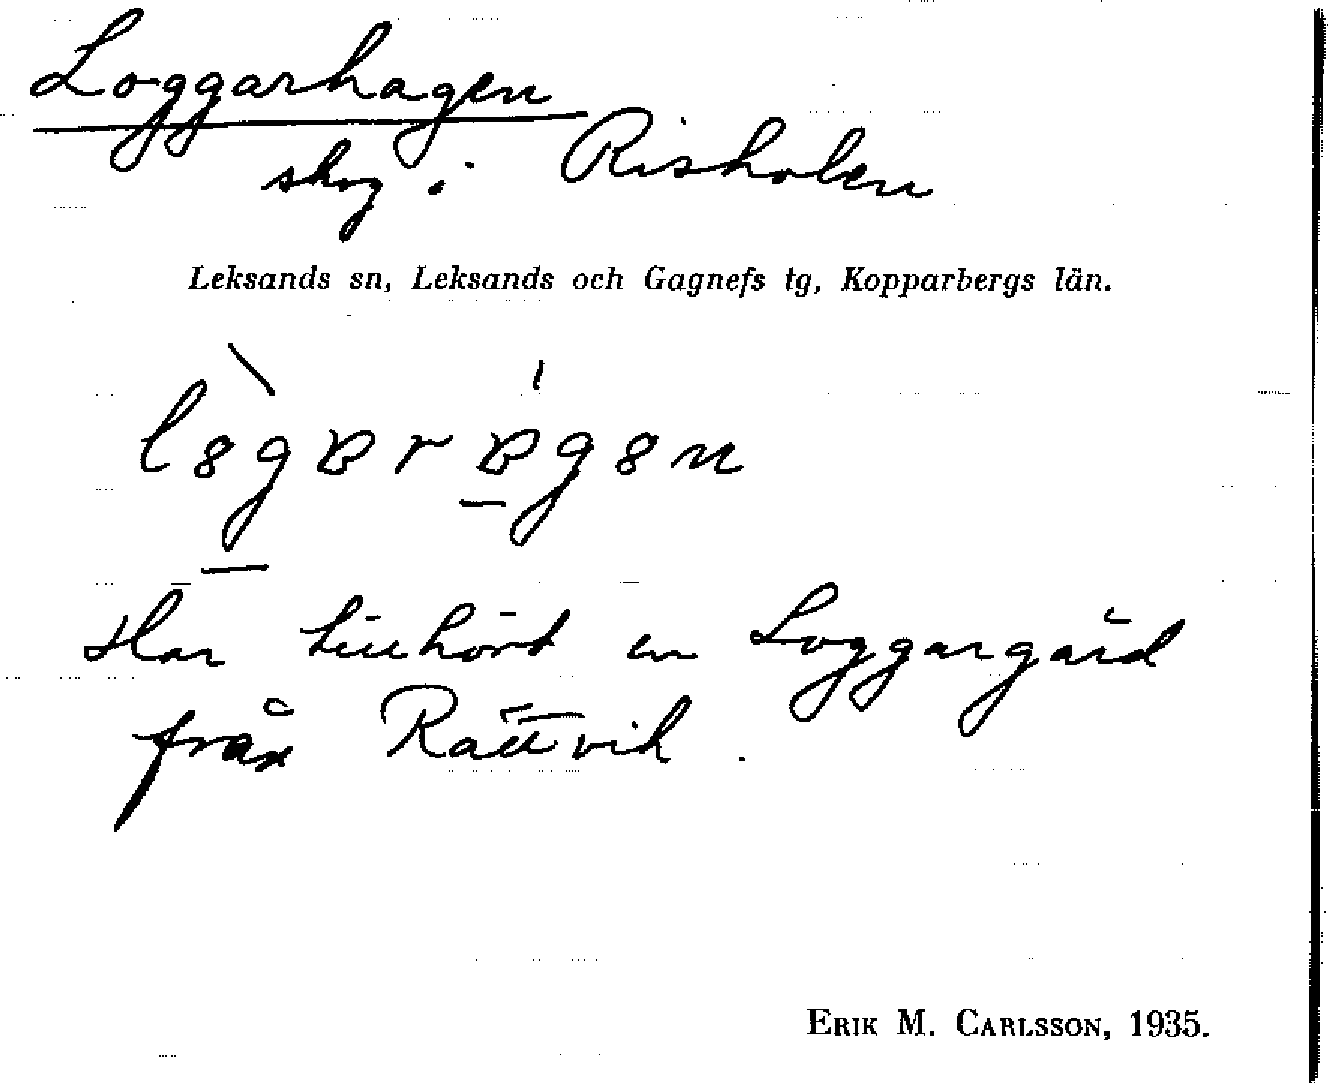 Loggarhagen
skog i Risholen
Leksands sn, Leksands och Gagnefs tg, Kopparbergs län.
Har tillhört en Loggargård
från Rättvik.
ERIK M. CARLSSON, 1935.